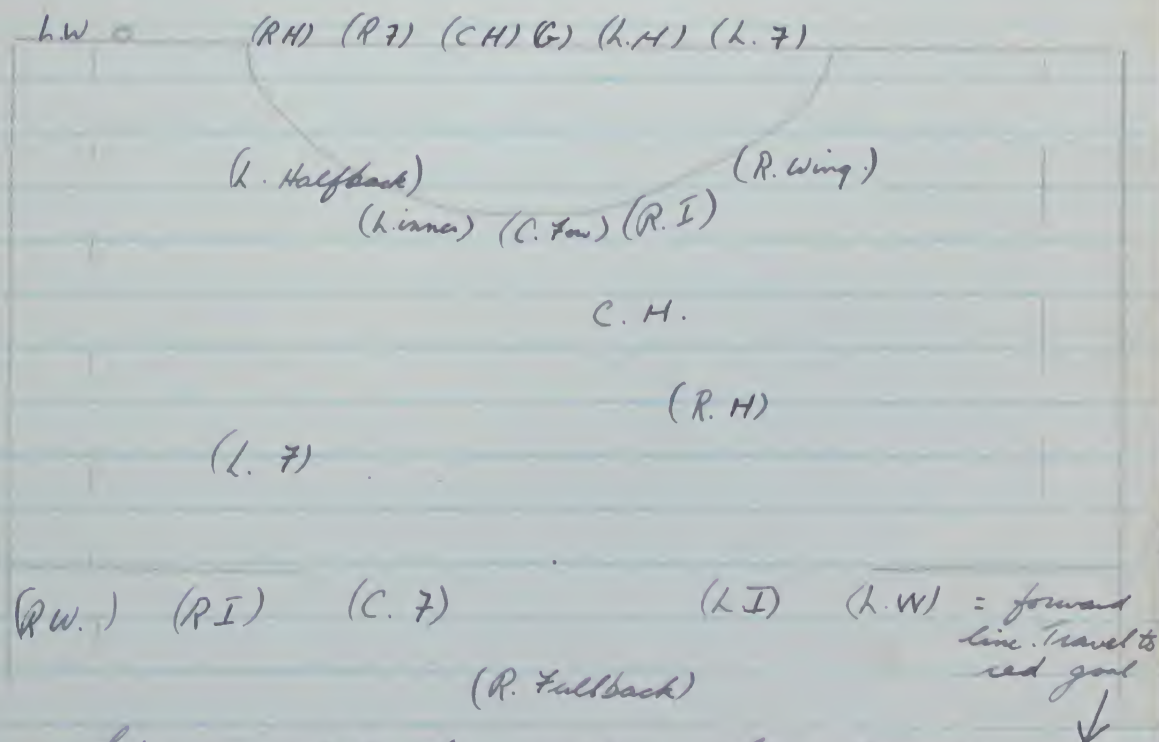 L.W (RH) (R7) (CH) G) (L.H) (L.7)
(L. Halfback) (R. Wing.)
(L. inner) (C. Fow) (R.I)
C. H.
(R. H)
(L. 7)
(RW.) (RI) (C. 7) (LI) (L.W) = forward
line. Travel to
red goal
(R. Fullback)